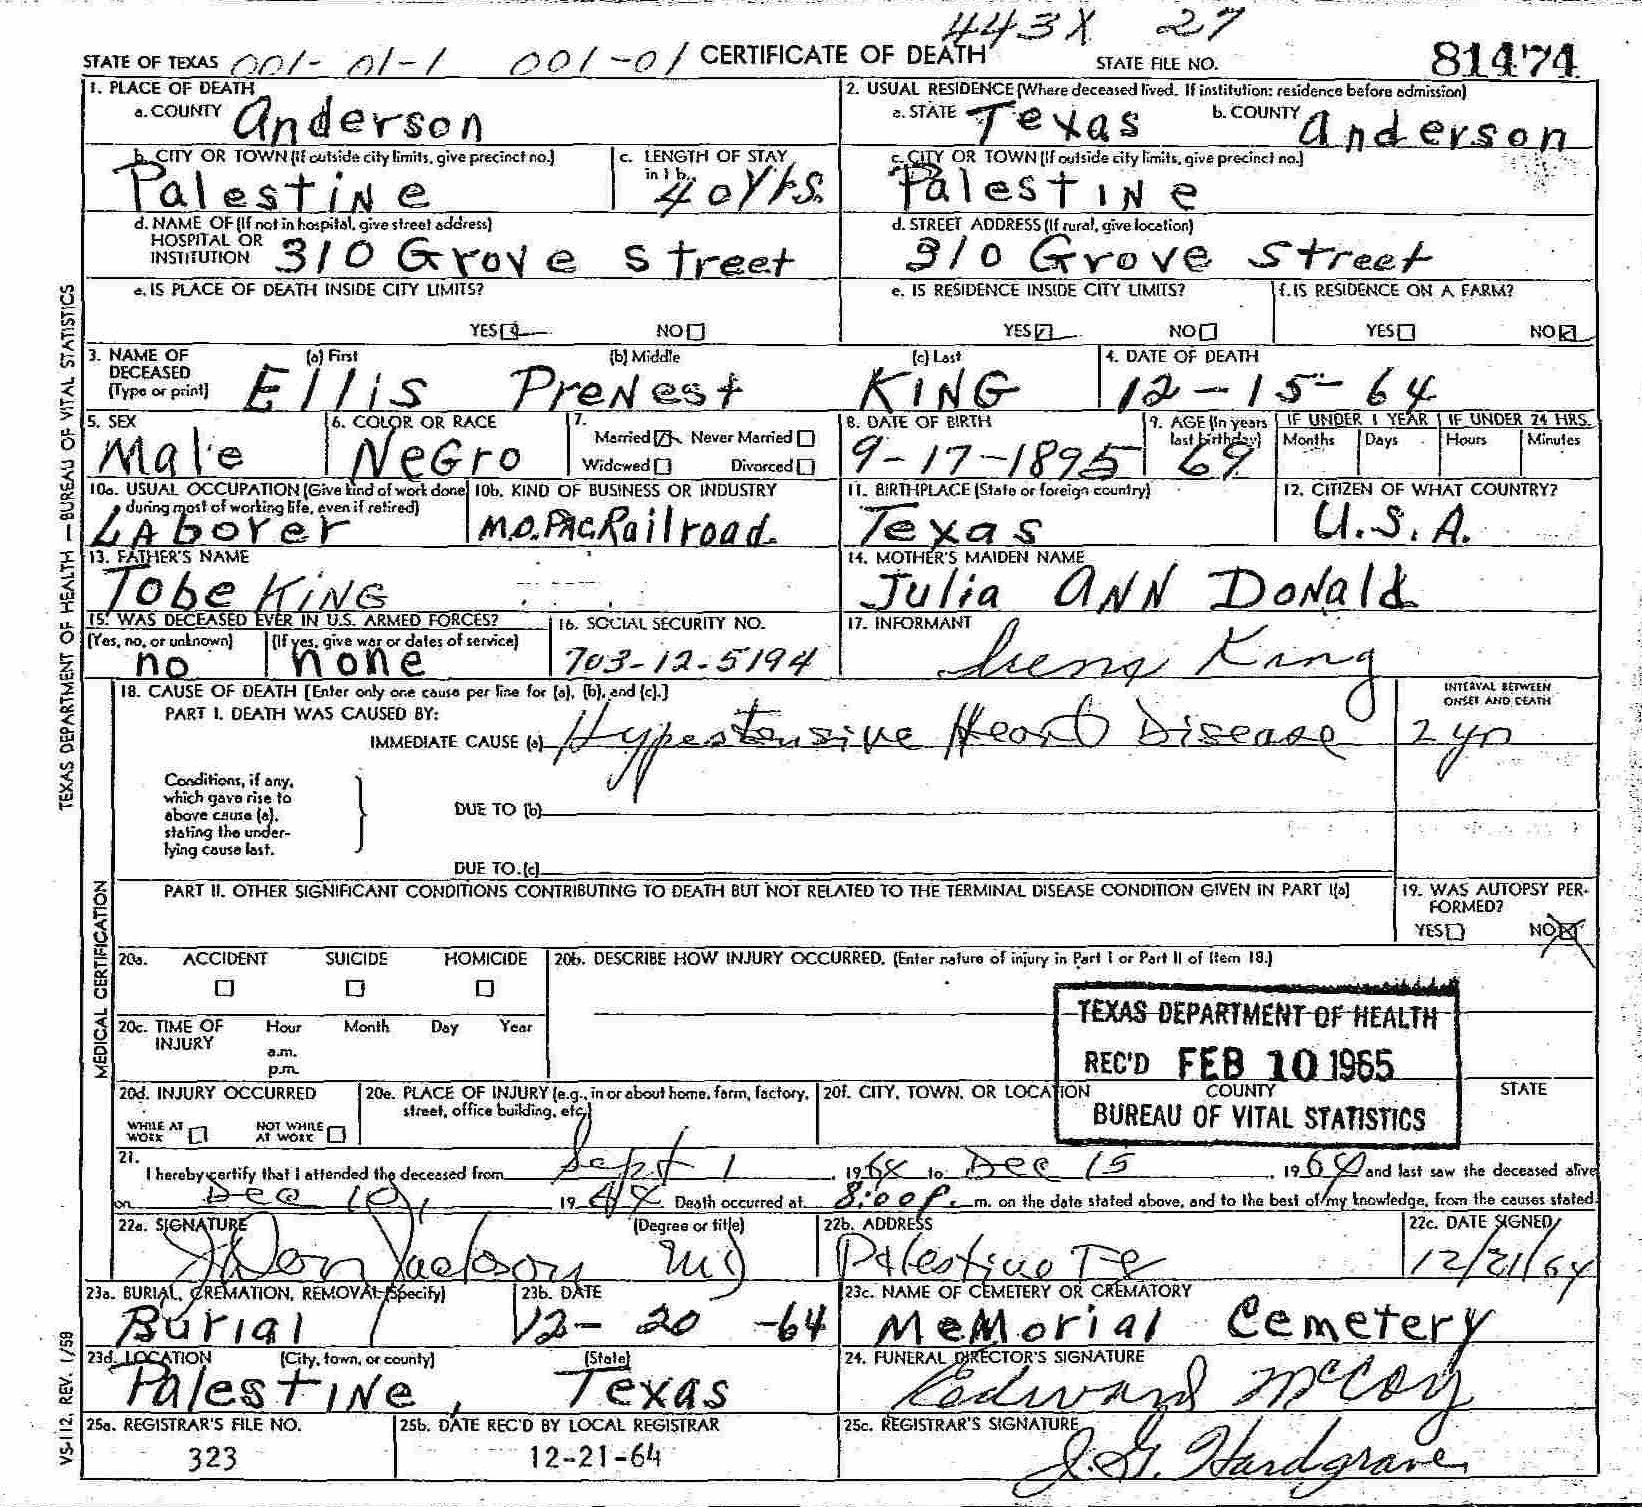 443X 27
STATE OF TEXAS 001-01-1 001-01 CERTIFICATE OF DEATH STATE FILE NO. 81474
1. PLACE OF DEATH
a. COUNTY Anderson
2. USUAL RESIDENCE (Where deceased lived. If institution: residence before admission)
a. STATE Texas b. COUNTY Anderson
b. CITY OR TOWN (If outside city limits, give precinct no.) Palestine
c. LENGTH OF STAY in 1 b. 40 Yrs.
c. CITY OR TOWN (If outside city limits, give precinct no.) Palestine
d. NAME OF (If not in hospital, give street address) HOSPITAL OR INSTITUTION 310 Grove Street
d. STREET ADDRESS (If rural, give location) 310 Grove Street
e. IS PLACE OF DEATH INSIDE CITY LIMITS?
YES NO
e. IS RESIDENCE INSIDE CITY LIMITS?
YES NO
f. IS RESIDENCE ON A FARM?
YES NO
3. NAME OF DECEASED (Type or print)
(a) First Ellis (b) Middle Prenest (c) Last KING
4. DATE OF DEATH 12-15-64
5. SEX Male
6. COLOR OR RACE Negro
7. Married Never Married
Widowed Divorced
8. DATE OF BIRTH 9-17-1895
9. AGE (In years last birthday) 69
IF UNDER 1 YEAR Months Days
IF UNDER 24 HRS. Hours Minutes
10a. USUAL OCCUPATION (Give kind of work done during most of working life, even if retired) Laborer
10b. KIND OF BUSINESS OR INDUSTRY M.O.PAC.Railroad
11. BIRTHPLACE (State or foreign country) Texas
12. CITIZEN OF WHAT COUNTRY? U.S.A.
13. FATHER'S NAME Tobe King
14. MOTHER'S MAIDEN NAME Julia ANN Donald
15. WAS DECEASED EVER IN U.S. ARMED FORCES?
(Yes, no, or unknown) no (If yes, give war or dates of service) none
16. SOCIAL SECURITY NO. 703-12-5194
17. INFORMANT King
18. CAUSE OF DEATH [Enter only one cause per line for (a), (b), and (c).]
PART I. DEATH WAS CAUSED BY:
IMMEDIATE CAUSE (a) Hypertensive Heart Disease
INTERVAL BETWEEN ONSET AND DEATH 2 yr
Conditions, if any, which gave rise to above cause (a), stating the underlying cause last.
DUE TO (b)
DUE TO (c)
PART II. OTHER SIGNIFICANT CONDITIONS CONTRIBUTING TO DEATH BUT NOT RELATED TO THE TERMINAL DISEASE CONDITION GIVEN IN PART I(a)
19. WAS AUTOPSY PERFORMED?
YES NO
20a. ACCIDENT SUICIDE HOMICIDE
20b. DESCRIBE HOW INJURY OCCURRED. (Enter nature of injury in Part I or Part II of Item 18.)
20c. TIME OF INJURY Hour Month Day Year
a.m.
p.m.
TEXAS DEPARTMENT OF HEALTH
REC'D FEB 10 1965
BUREAU OF VITAL STATISTICS
20d. INJURY OCCURRED
WHILE AT WORK NOT WHILE AT WORK
20e. PLACE OF INJURY (e.g., in or about home, farm, factory, street, office building, etc.)
20f. CITY, TOWN, OR LOCATION COUNTY STATE
21. I hereby certify that I attended the deceased from Sept 1, 1964 to Dec 15, 1964 and last saw the deceased alive
on Dec 10, 1964 Death occurred at 8:00 p. m. on the date stated above, and to the best of my knowledge, from the causes stated.
22a. SIGNATURE (Degree or title) Don Jackson MD
22b. ADDRESS Palestine Te
22c. DATE SIGNED 12/21/64
23a. BURIAL, CREMATION, REMOVAL (Specify) Burial
23b. DATE 12-20-64
23c. NAME OF CEMETERY OR CREMATORY Memorial Cemetery
23d. LOCATION (City, town, or county) (State) Palestine, Texas
24. FUNERAL DIRECTOR'S SIGNATURE Edward McCoy
25a. REGISTRAR'S FILE NO. 323
25b. DATE REC'D BY LOCAL REGISTRAR 12-21-64
25c. REGISTRAR'S SIGNATURE J.G. Hardgrave
TEXAS DEPARTMENT OF HEALTH — BUREAU OF VITAL STATISTICS
MEDICAL CERTIFICATION
VS-112, REV. 1/58